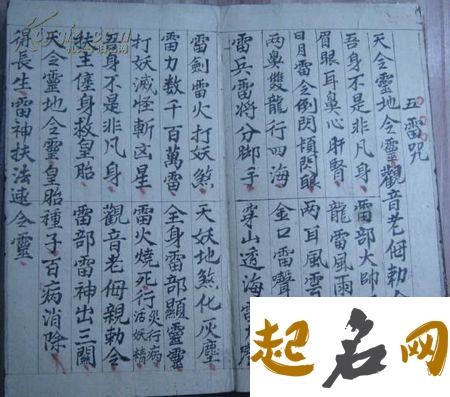 五雷咒
天令靈地令靈觀音老母勅令
吾身不是非凡身 雷部大帥
眉眼耳鼻心肝腎 龍雷風雨
日月雷令倒閃傾閃眼 兩耳風雲
兩鼻雙龍行四海 金口雷聲
雷兵雷將分脚手 穿山透海雷
雷劍雷火打妖煞 天妖地煞化灰塵
雷力数千百萬雷 全身雷部顯靈靈
打妖滅怪斬凶星 雷火燒死行災行病活妖精
吾身不是非凡身 觀音老母親勅令
扶主僮身救皇胎 雷部雷神出三關
天令靈地令靈皇胎種子百病消除
得長生雷神扶法速令靈
起名网